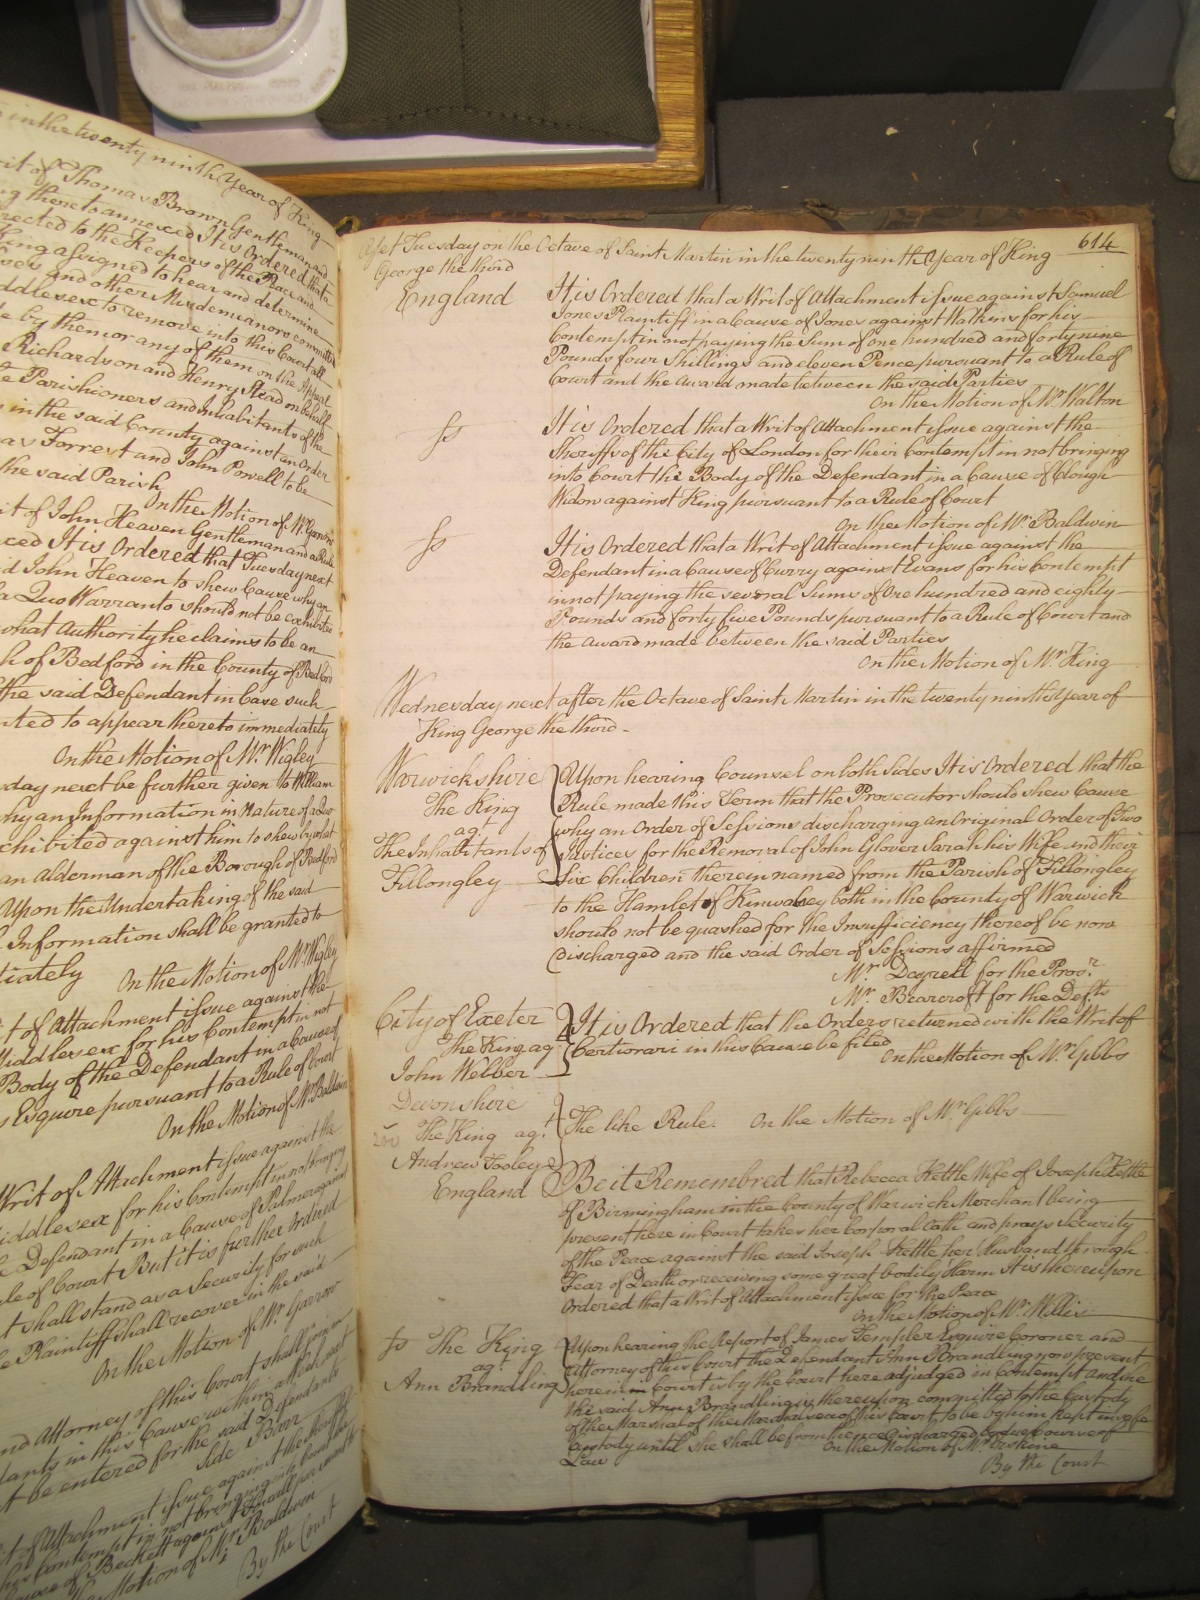 in the twenty ninth Year of King
rit of Thomas Brown Gentleman and
g thereto annexed It is Ordered that a
rected to the Keepers of the Peace and
King assigned to hear and determine
and other Misdemeanors committed
ddlesex to remove into this Court all
e by them or any of them on the Appeal
Richardson and Henry Stead on behalf
e Parishioners and Inhabitants of the
in the said County against an Order
as Forrest and John Powell to be
the said Parish
On the Motion of Mr.
it of John Heaven Gentleman and a Rule
ced It is Ordered that Tuesday next
d John Heaven to shew Cause why an
a Quo Warranto should not be exhibited
what Authority he claims to be an
h of Bedford in the County of Bedford
the said Defendant in Case such
nted to appear thereto immediately
On the Motion of Mr. Wigley
day next be further given to William
hy an Information in Nature of a Quo
xhibited against him to shew by what
an Alderman of the Borough of Bedford
Upon the Undertaking of the said
Information shall be granted to
tiately On the Motion of Mr. Wigley
t of Attachment issue against the
Middlesex for his Contempt in not
Body of the Defendant in a Cause of
s Esquire pursuant to a Rule of Court
On the Motion of Mr. Baldwin
Writ of Attachment issue against the
iddlesex for his Contempt in not bringing
e Defendant in a Cause of Palmer against
ule of Court But it is further Ordered
t shall stand as a Security for such
e Plaintiff shall recover in the said
On the Motion of Mr. Garrow
nd Attorney of this Court shall
dants in this Cause within
t be entered for the said Defendants
Side Bar
t of Attachment issue against the Sheriff
his Contempt in not bringing into Court the
ause of Beckett against
the Motion of Mr. Baldwin
By the Court
Yet Tuesday on the Octave of Saint Martin in the twenty ninth Year of King 614
George the third
England It is Ordered that a Writ of Attachment issue against Samuel
Jones Plaintiff in a Cause of Jones against Watkins for his
Contempt in not paying the Sum of one hundred and forty nine
Pounds four Shillings and eleven Pence pursuant to a Rule of
Court and the Award made between the said Parties
On the Motion of Mr. Walton
fs It is Ordered that a Writ of Attachment issue against the
Sheriffs of the City of London for their Contempt in not bringing
into Court the Body of the Defendant in a Cause of Clough
Widow against King pursuant to a Rule of Court
On the Motion of Mr. Baldwin
fs It is Ordered that a Writ of Attachment issue against the
Defendant in a Cause of Curry against Evans for his Contempt
in not paying the several Sums of One hundred and eighty
Pounds and forty five Pounds pursuant to a Rule of Court and
the Award made between the said Parties
On the Motion of Mr. King
Wednesday next after the Octave of Saint Martin in the twenty ninth Year of
King George the third
Warwickshire Upon hearing Counsel on both sides It is Ordered that the
The King Rule made this Term that the Prosecutor should shew Cause
agt. why an Order of Sessions discharging an Original Order of Two
The Inhabitants of Justices for the Removal of John Glover Sarah his Wife and their
Fillongley Six Children therein named from the Parish of Fillongley
to the Hamlet of Kinwalsey both in the County of Warwick
should not be quashed for the Insufficiency thereof be now
discharged and the said Order of Sessions affirmed
Mr. Dayrell for the Prosr.
Mr. Bearcroft for the Defts
City of Exeter It is Ordered that the Orders returned with the Writ of
The King agt. Certiorari in this Cause be filed On the Motion of Mr. Gibbs
John Welber
Devonshire
The King agt. The like Rule. On the Motion of Mr. Gibbs
Andrew Tooley
England Be it Remembred that Rebecca Kettle Wife of Joseph Kettle
of Birmingham in the County of Warwick Merchant being
present here in Court takes her Corporal Oath and prays Security
of the Peace against the said Joseph Kettle her Husband through
Fear of Death or receiving some great bodily Harm It is thereupon
Ordered that a Writ of Attachment issue for the Peace
On the Motion of Mr. Willis
fs The King Upon hearing the Report of James Templer Esquire Coroner and
agt. Attorney of this Court the Defendant Ann Brandling now present
Ann Brandling herein Court is by the Court here adjudged in Contempt and
the said Ann Brandling is thereupon committed to the Custody
of the Marshal of the Marshalsea of this Court to be by him kept in safe
Custody until she shall be from thence discharged by due Course of
Law On the Motion of Mr. Erskine
By the Court